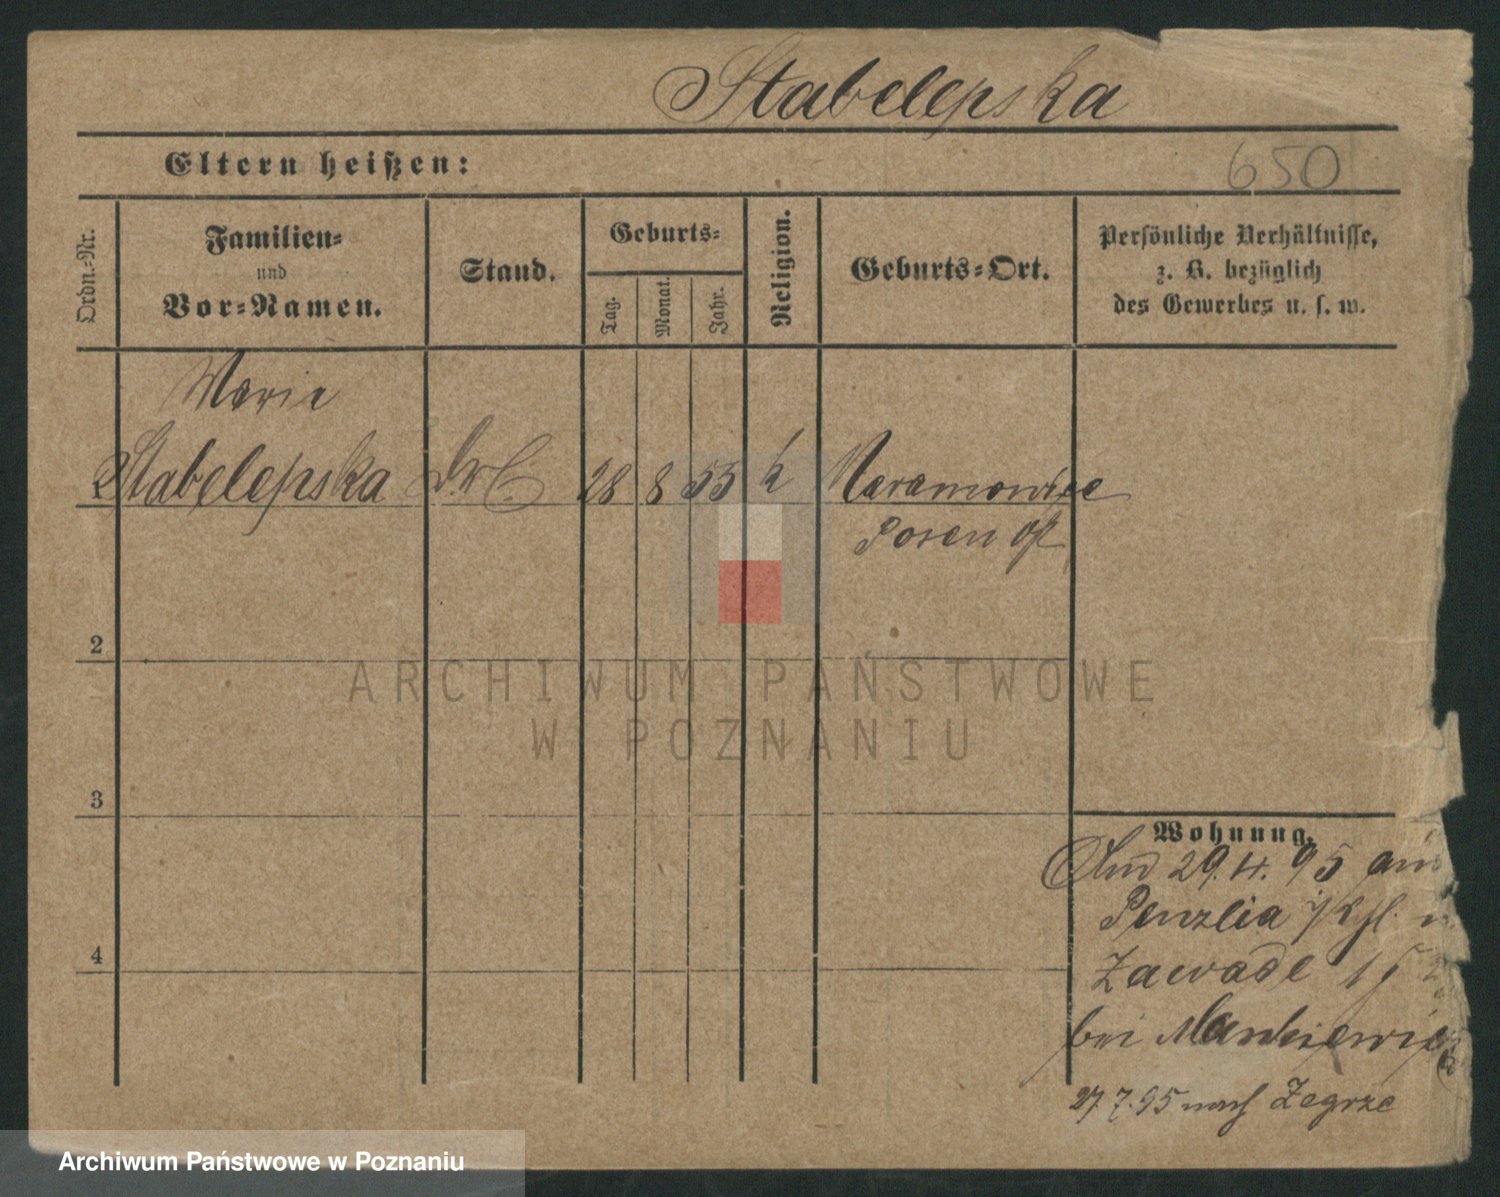 Stabelepska
Eltern heißen:
650
Ordn.-Nr.
Familien-
und
Vor-Namen.
Stand.
Geburts-
Tag.
Monat.
Jahr.
Religion.
Geburts-Ort.
Persönliche Verhältnisse,
z. B. bezüglich
des Gewerbes u. s. w.
Marie
1 Stabelepska 28 8 55 k Naramowice
Posen Ost
2
3
4
Wohnung.
29.4.95 aus
Zawade 15
bei Mankiewicz
27.7.95 nach Zegrze
ARCHIWUM PAŃSTWOWE
W POZNANIU
Archiwum Państwowe w Poznaniu